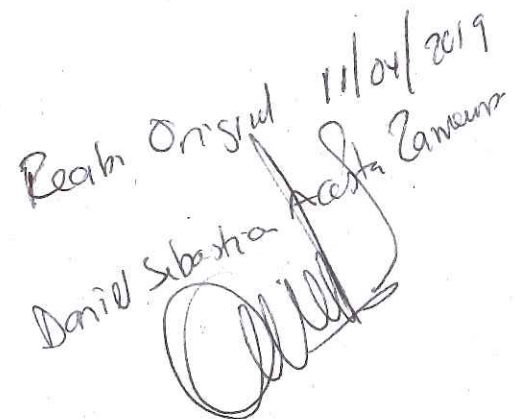 Recibi Original 11/04/2019
Daniel Sebastian Acosta Zamora